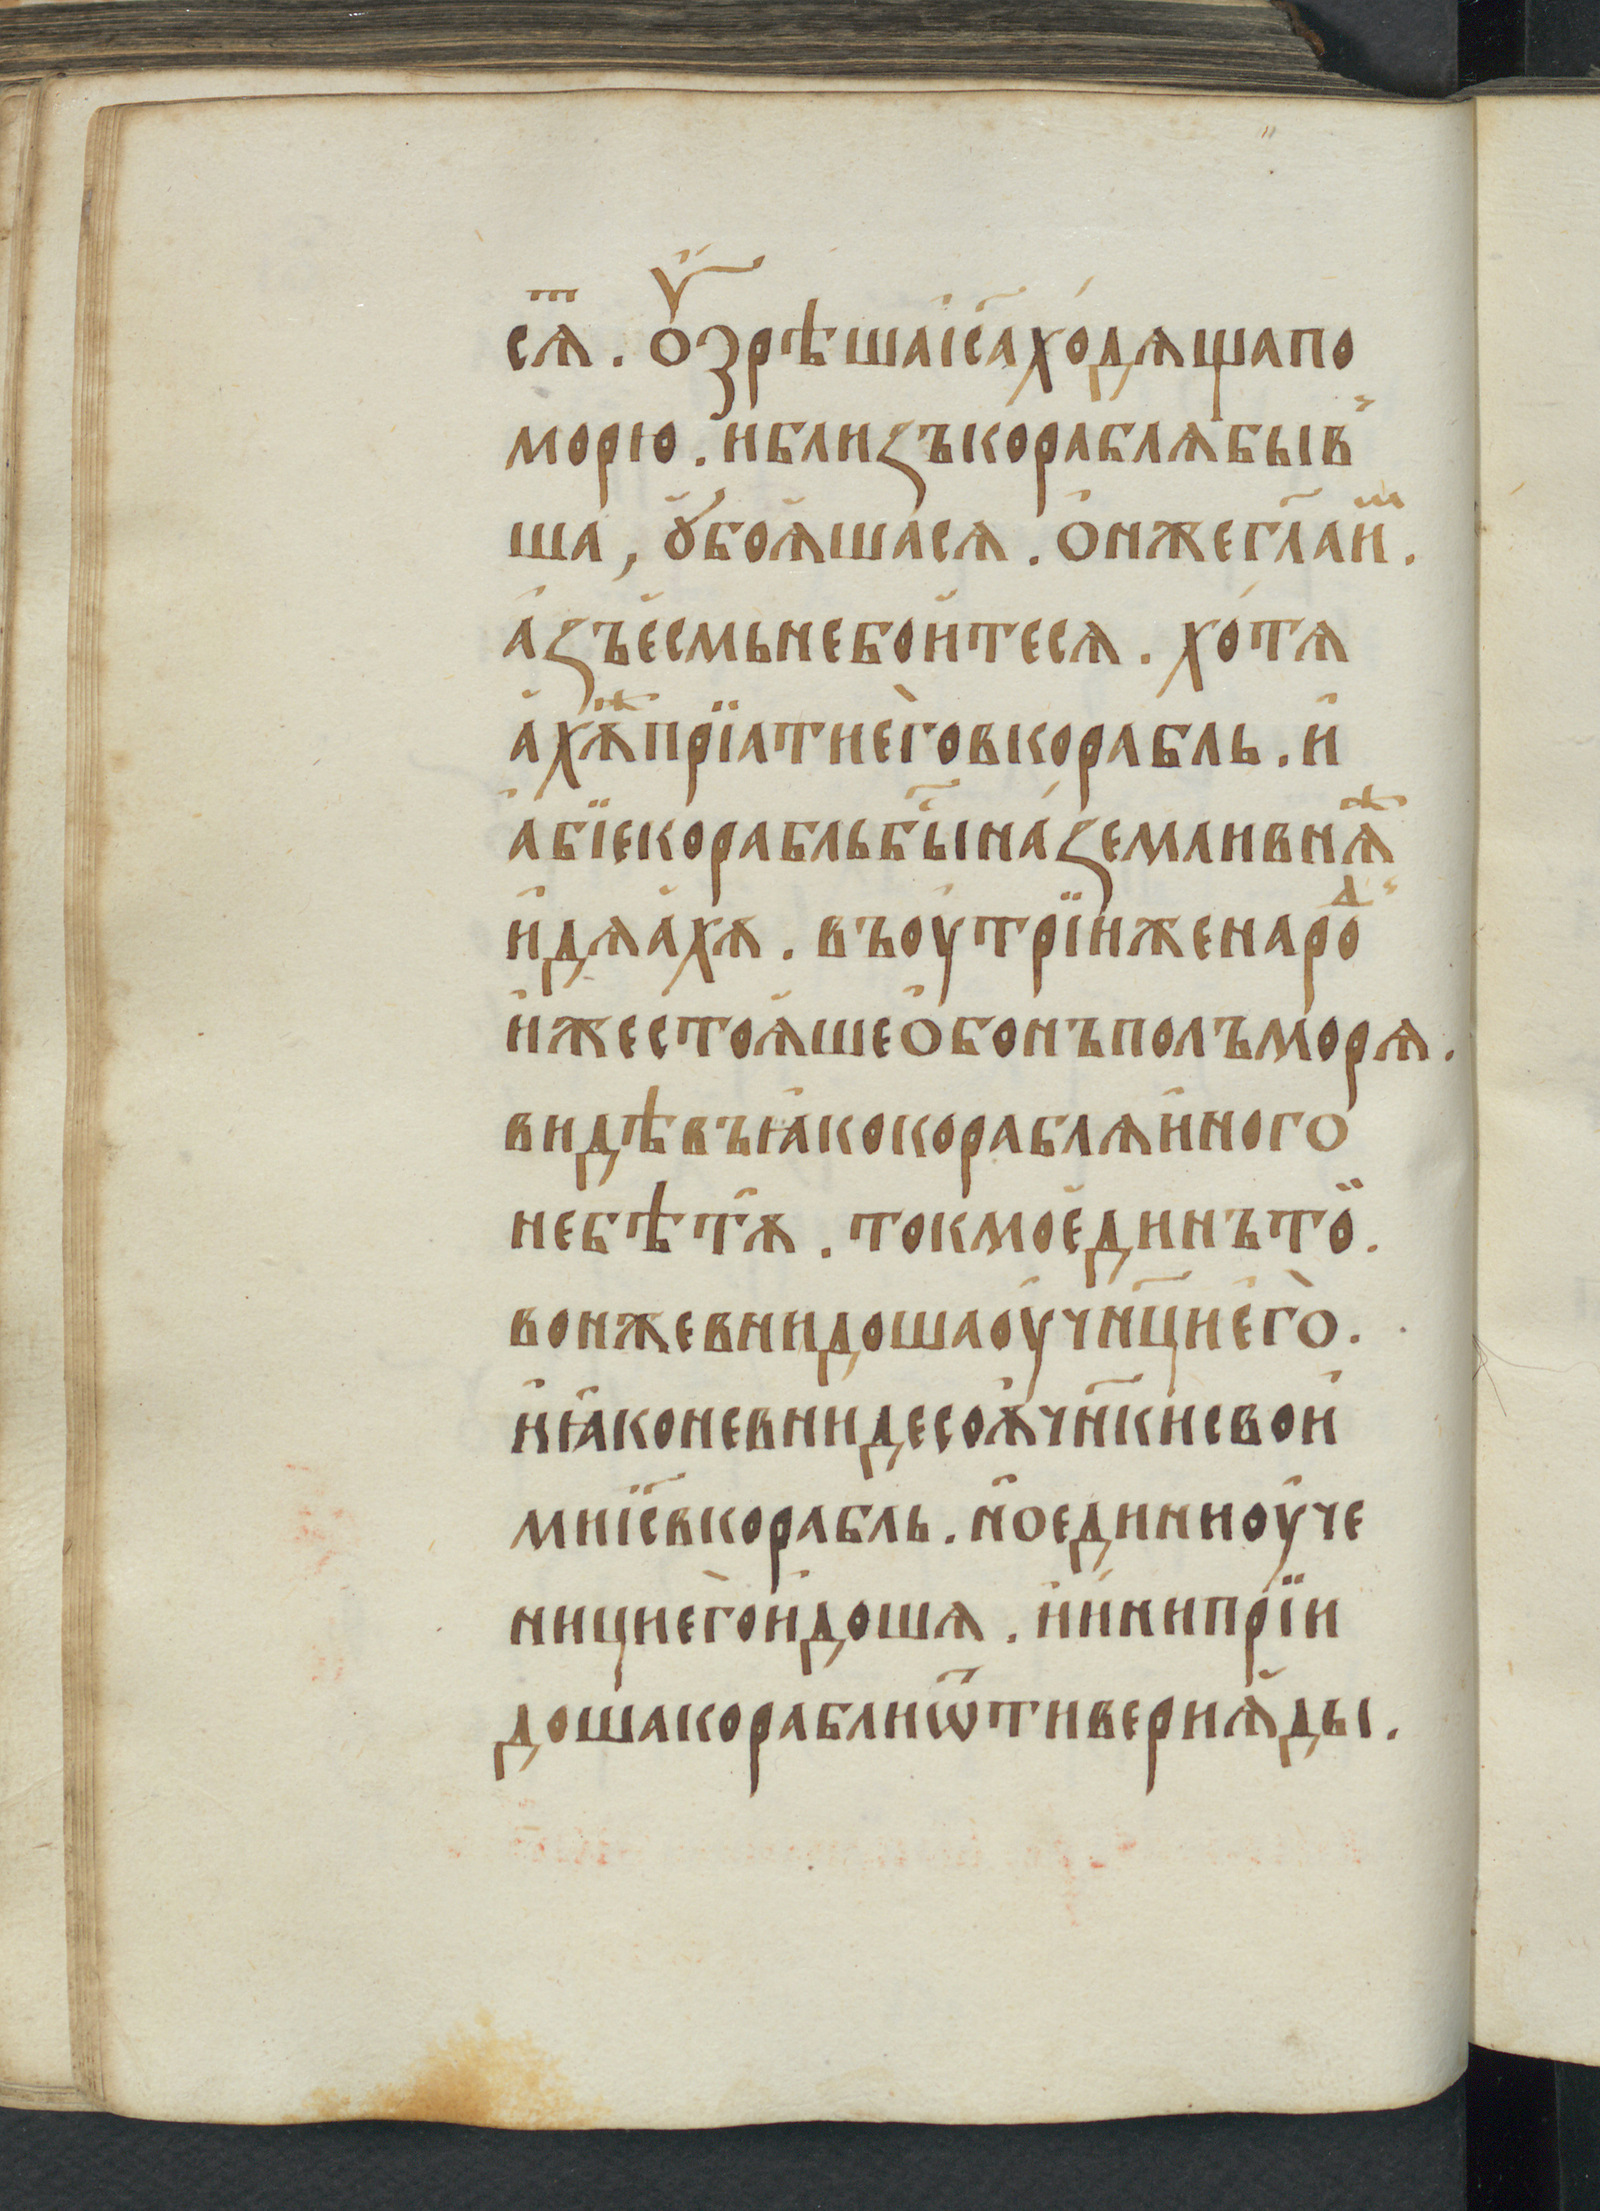 сѧⷮ. Оу҆зрѣшаі҆с҃ахо́дѧщапо
морю. и҆близъкораблѧбыв
ша, ꙋ҆боѧ҆шасѧ. О҆нжегл҃аи҆ⷨ.
а҆ꙁъе҆смьнебои҆тесѧ. хо́тѧ
а҆хѧⷤпрїатиего̀вкорабль. и҆
а҆бїекорабльбы҃на́ꙁемливнѧⷤ
и҆дѧа҆хѧ. въоу҆трїиженароⷣ
и҆жестоѧ҆шео҆бонъполъморѧ.
видѣвъꙗ҆кокораблѧи҆ного
небѣтꙋ̀. токмое҆динъто̏.
вонжевнидошаоу҆чн҃цие҆го̀.
и҆ꙗ҆коневнидесоѧ҆чн҃кисвои҆
миі҆с҃вкорабль. нОе҆диниоу҆че
ницие҆го̀и҆дошѧ. и҆и҆нипрїи
дошакораблиѿтивериѧ҆ды.